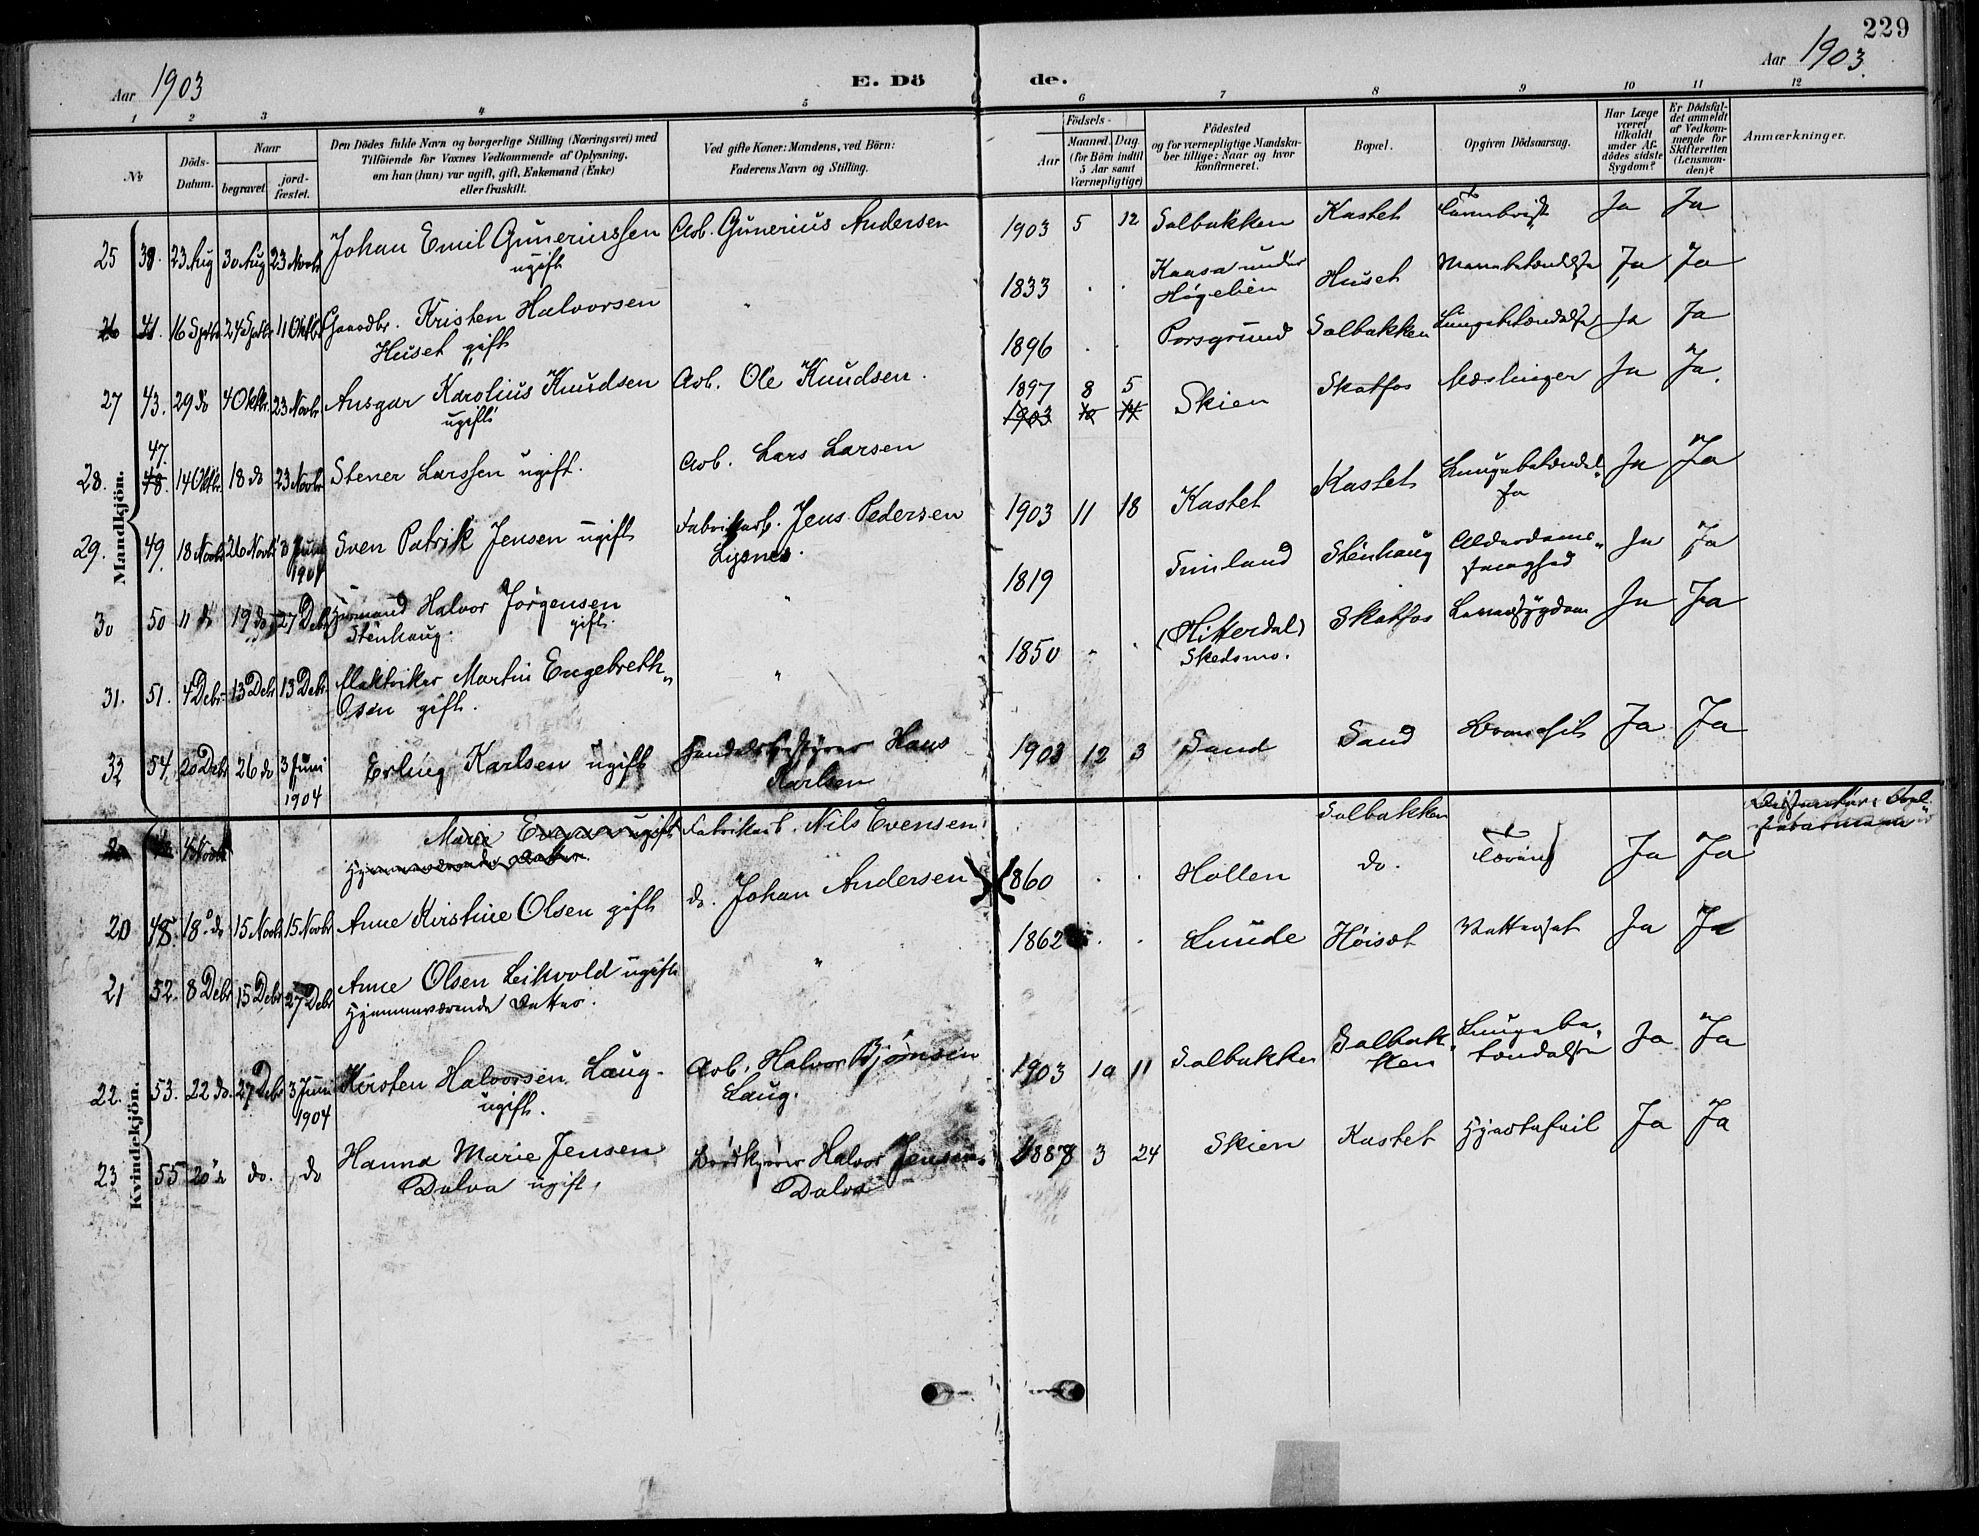 229
Aar 1903
E. Dö
de.
Aar 1903.
1 2 3 4 5 6 7 8 9 10 11 12
№
Döds-
Datum.
Naar
begravet.
jord-
fæstet.
Den Dödes fulde Navn og borgerlige Stilling (Næringsvei) med
Tilföiende for Voxnes Vedkommende af Oplysning,
om han (hun) var ugift, gift, Enkemand (Enke)
eller fraskilt.
Ved gifte Koner: Mandens, ved Börn:
Faderens Navn og Stilling.
Födsels-
Aar
Maaned. Dag
(for Börn indtil
5 Aar samt
Værnepligtige)
Födested
og for værnepligtige Mandska-
ber tillige: Naar og hvor
konfirmeret.
Bopæl.
Opgiven Dödsaarsag.
Har Læge
været
tilkaldt
under Af-
dödes sidste
Sygdom?
Er Dödsfal-
det anmeldt
af Vedkom-
mende for
Skifteretten
(Lensman-
den)?
Anmærkninger.
Mandkjön.
25 38. 23 Aug 30 Aug 23 Novbr Johan Emil Guneriussen Arb. Gunerius Andersen 1903 5 12 Solbakken Kastet Ja Ja
ugift
26 41. 16 Septbr 24 Septbr 11 Oktbr Gaardbr. Kristen Halvorsen " 1833 . . Kaasa under Huset Ja Ja
Huset gift
Høgelien
27 43. 29 do 4 Oktbr. 23 Novbr. Ansgar Karolius Knudsen Arb. Ole Knudsen. 1896 . . Porsgrund Solbakken Lungebetændelse Ja Ja
ugift
47.
28. 48. 14 Oktbr 18 do 23 Novbr Stener Larssen ugift. Arb. Lars Larsen 1897 8 5 Skien Skotfos Mæslinger Ja Ja.
1903 10 14
29. 49. 18 Novbr 26 Novbr 3 Juni Sven Patrik Jensen ugift Fabrikarb. Jens Pedersen 1903 11 18 Kastet Kastet Lungebetændel-
se Ja Ja
1904
Lysnes.
30 50 11 do 19 do 27 Debr Halvor Jörgensen " 1819 Stenhaug Alderdoms- Ja Ja
Stenhaug. gift.
svaghed
31. 51. 4 Debr. 13 Debr 13 Debr. Elektriker Martin Engebreth- " 1850 . . (Hitterdal) Skotfos Ja Ja
Olsen gift.
Skedsmo.
32 54. 20 Debr 26 do 3 Juni Erling Karlsen ugift Handelsbestyrer Hans 1903 12 3 Sand Sand Ja Ja
1904
Karlsen
Kvindekjön.
Marie ugift Fabrikarb. Nils Evensen Solbakken
Hjemmeværende Datter.
20 48. 18 do 15 Novbr 15 Novbr Anne Kirstine Olsen gift do. Johan Andersen 1860 . . Hollen do. Tæring Ja Ja
21 52. 8 Debr 15 Debr 27 Debr Anne Olsen Leikvold ugift " 1862 . . Lunde Høisæt Vattersot Ja Ja
Hjemmeværende Datter.
22. 53. 22 do. 27 Debr 3 Juni Kirsten Halvorsen Laug- Arb. Halvor Bjørnsen 1903 10 11 Solbakken Solbak-
ken Lungebe-
tændelse Ja Ja
1904
ugift.
Laug.
23 55 20 do. do Hanna Marie Jensen Halvor Jensen 1888 3 24 Skien Kastet Hjertefeil Ja Ja
Dalva ugift.
Dalva